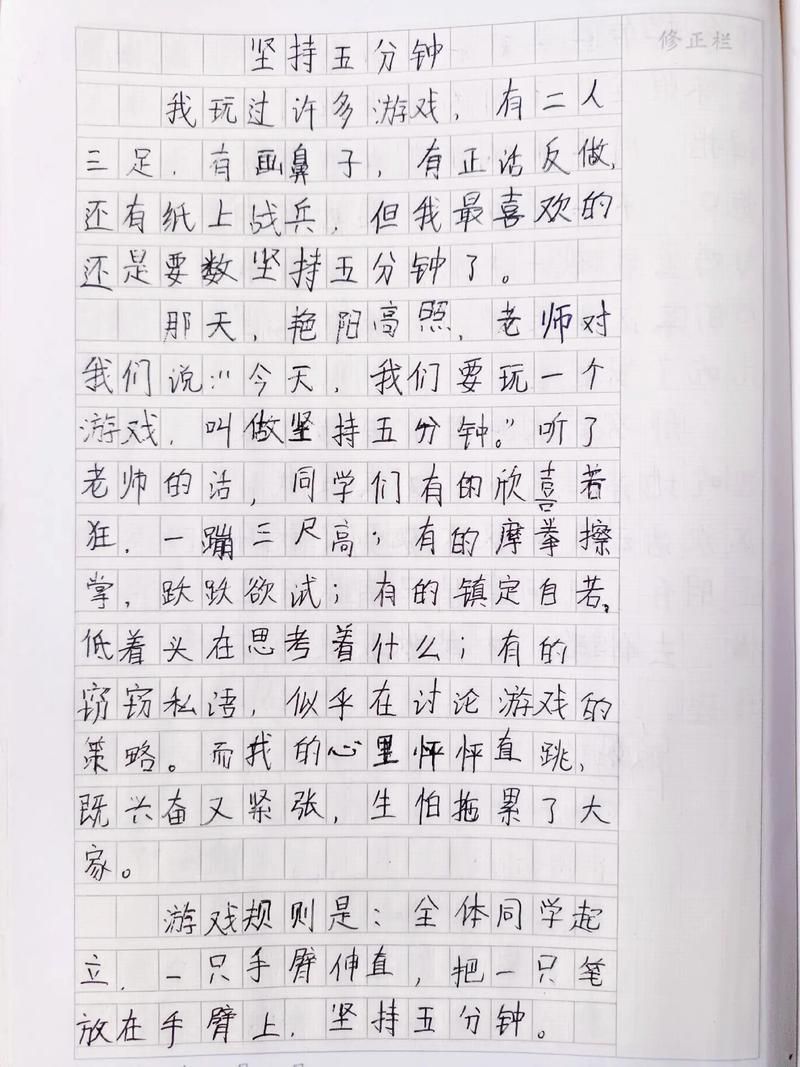 坚持五分钟
修正栏
我玩过许多游戏，有二人
三足，有画鼻子，有正话反做，
还有纸上战兵，但我最喜欢的
还是要数坚持五分钟了。
那天，艳阳高照，老师对
我们说：“今天，我们要玩一个
游戏，叫做坚持五分钟。”听了
老师的话，同学们有的欣喜若
狂，一蹦三尺高；有的摩拳擦
掌，跃跃欲试；有的镇定自若，
低着头在思考着什么；有的
窃窃私语，似乎在讨论游戏的
策略。而我的心里怦怦直跳，
既兴奋又紧张，生怕拖累了大
家。
游戏规则是：全体同学起
立，一只手臂伸直，把一只笔
放在手臂上，坚持五分钟。